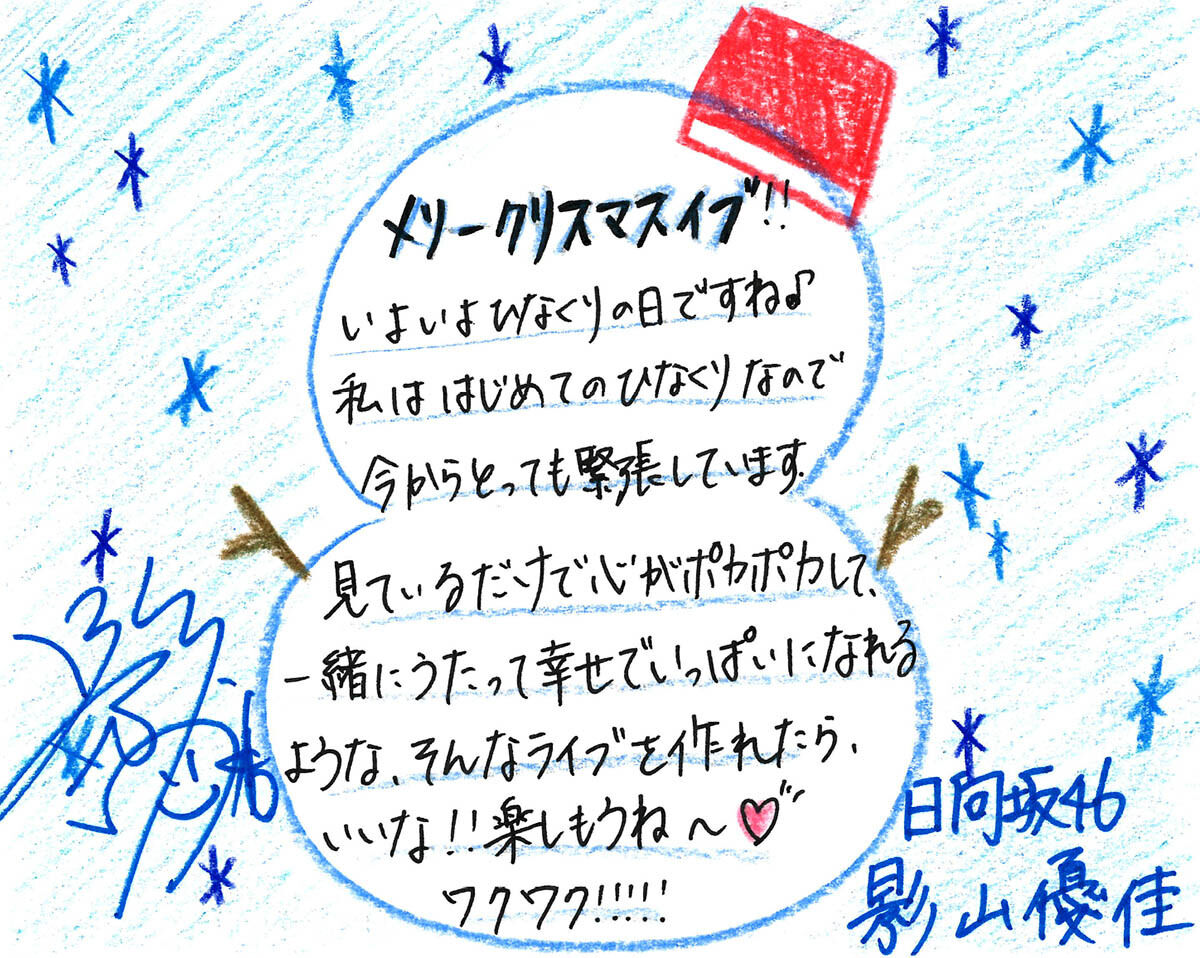 メリークリスマスイブ!!
いよいよひなくりの日ですね♪
私ははじめてのひなくりなので
今からとっても緊張しています.
見ているだけで心がポカポカして、
一緒にうたって幸せでいっぱいになれる
ような、そんなライブを作れたら、
いいな!!楽しもうね〜♡
ワクワク!!!!!
日向坂46
影山優佳